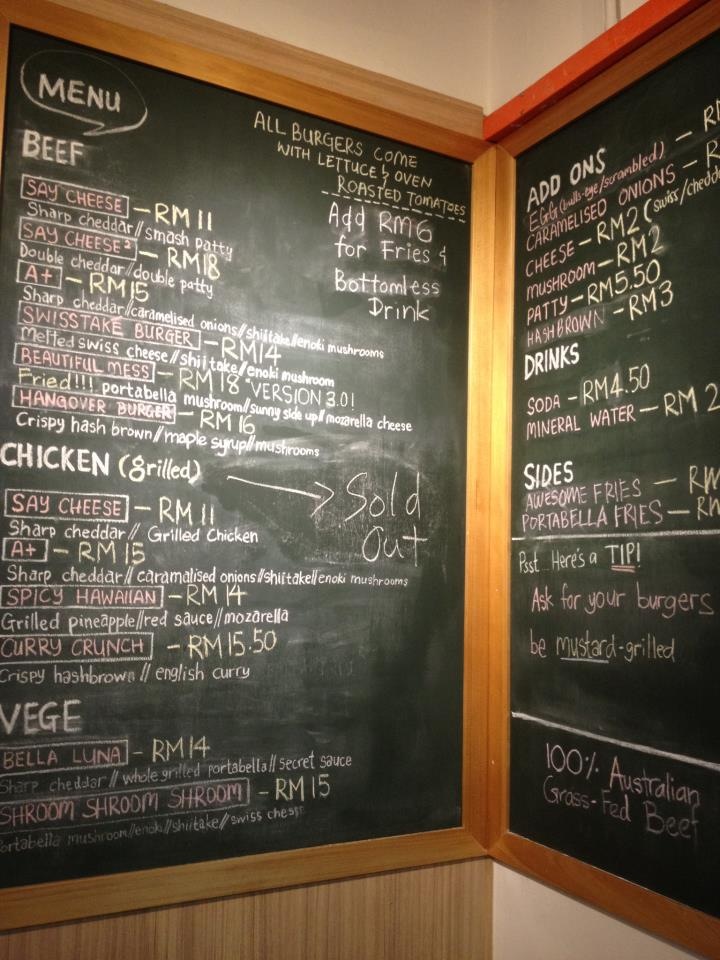 MENU
ALL BURGERS COME
WITH LETTUCE & OVEN
ROASTED TOMATOES
Add RM6
for Fries &
Bottomless
Drink
BEEF
SAY CHEESE - RM11
Sharp cheddar//smash patty
SAY CHEESE² - RM18
Double cheddar//double patty
A+ - RM15
Sharp cheddar//caramelised onions//shiitake//enoki mushrooms
SWISSTAKE BURGER - RM14
Melted swiss cheese//shiitake//enoki mushroom
BEAUTIFUL MESS - RM18 "VERSION 3.0!
Fried!!! portabella mushroom//sunny side up//mozarella cheese
HANGOVER BURGER - RM16
Crispy hash brown//maple syrup//mushrooms
CHICKEN (grilled)
Sold
Out
SAY CHEESE - RM11
Sharp cheddar// Grilled Chicken
A+ - RM15
Sharp cheddar//caramalised onions//shiitake//enoki mushrooms
SPICY HAWAIIAN - RM14
Grilled pineapple//red sauce//mozarella
CURRY CRUNCH - RM15.50
Crispy hashbrown // english curry
VEGE
BELLA LUNA - RM14
Sharp cheddar//whole grilled portabella//secret sauce
SHROOM SHROOM SHROOM - RM15
Portabella mushroom//enoki//shiitake//swiss cheese
ADD ONS
EGG (bulls-eye/scrambled) -
CARAMELISED ONIONS -
CHEESE - RM2 (swiss/chedda
MUSHROOM - RM2
PATTY - RM5.50
HASHBROWN - RM3
DRINKS
SODA - RM4.50
MINERAL WATER - RM2
SIDES
AWESOME FRIES -
PORTABELLA FRIES -
Psst Here's a TIP!
Ask for your burgers
be mustard-grilled
100% Australian
Grass-Fed Beef